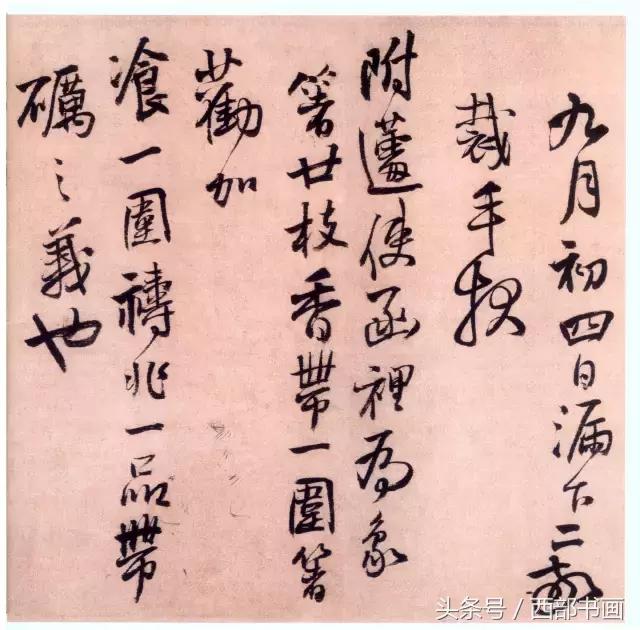 九月初四日漏下二鼓
裁手
附使函裡為象
箸廿枝香帶一圍箸
勸加
飡一圍禱兆一品帶
礪之義也
头条号 / 西部书画